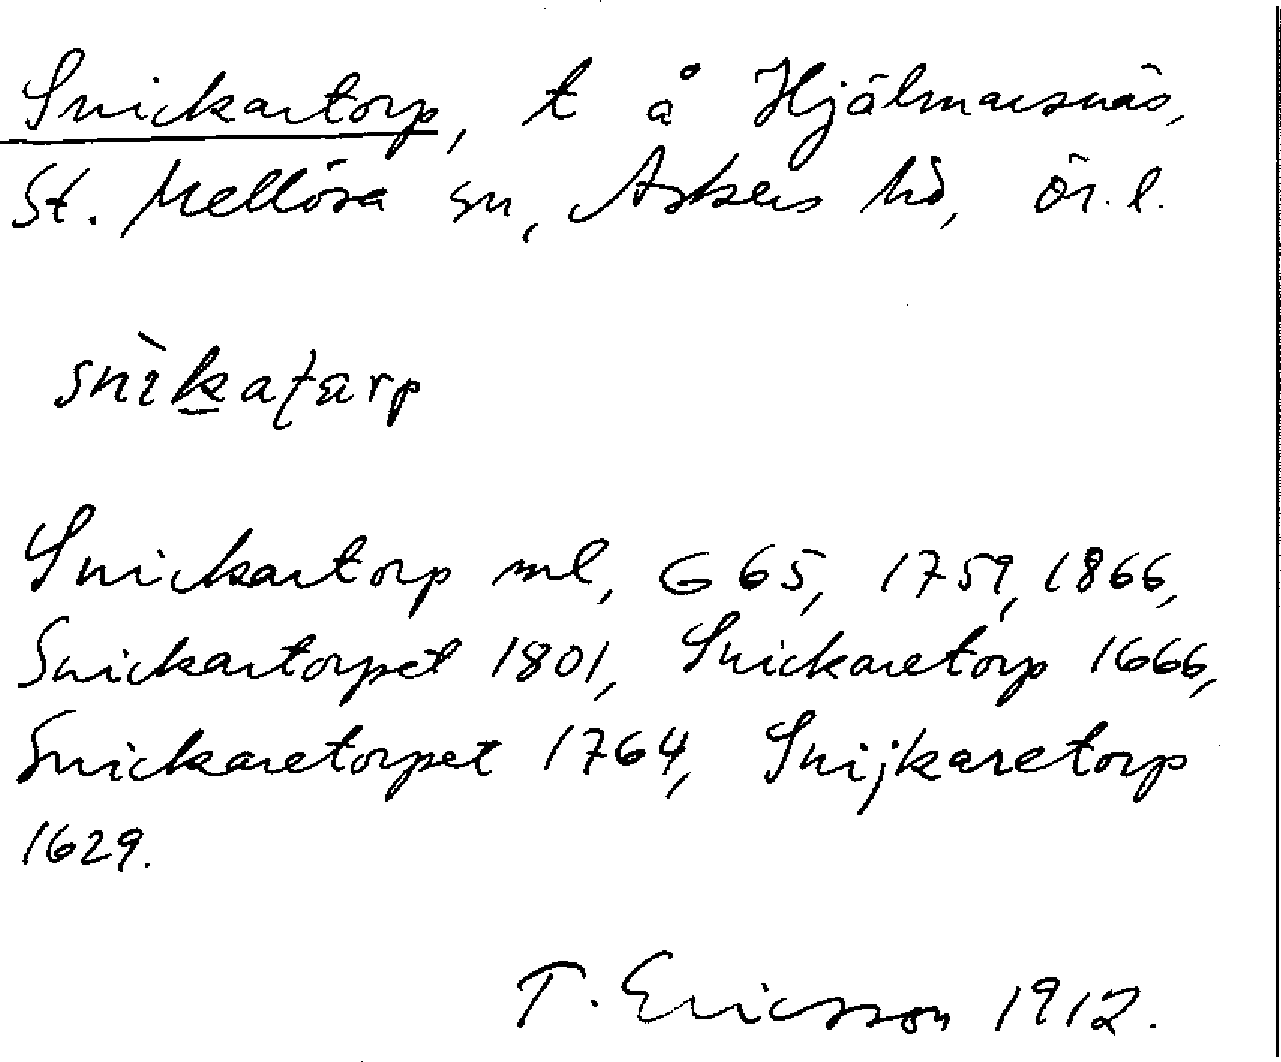 Snickartorp, t å Hjälmarsnäs,
St. Mellösa sn, Askers hd, ör. l.
Snickartorp ml, G 65, 1759, 1866,
Snickartorpet 1801, Snickaretorp 1666,
Snickaretorpet 1764, Snijkaretorp
1629.
T. Ericsson 1912.